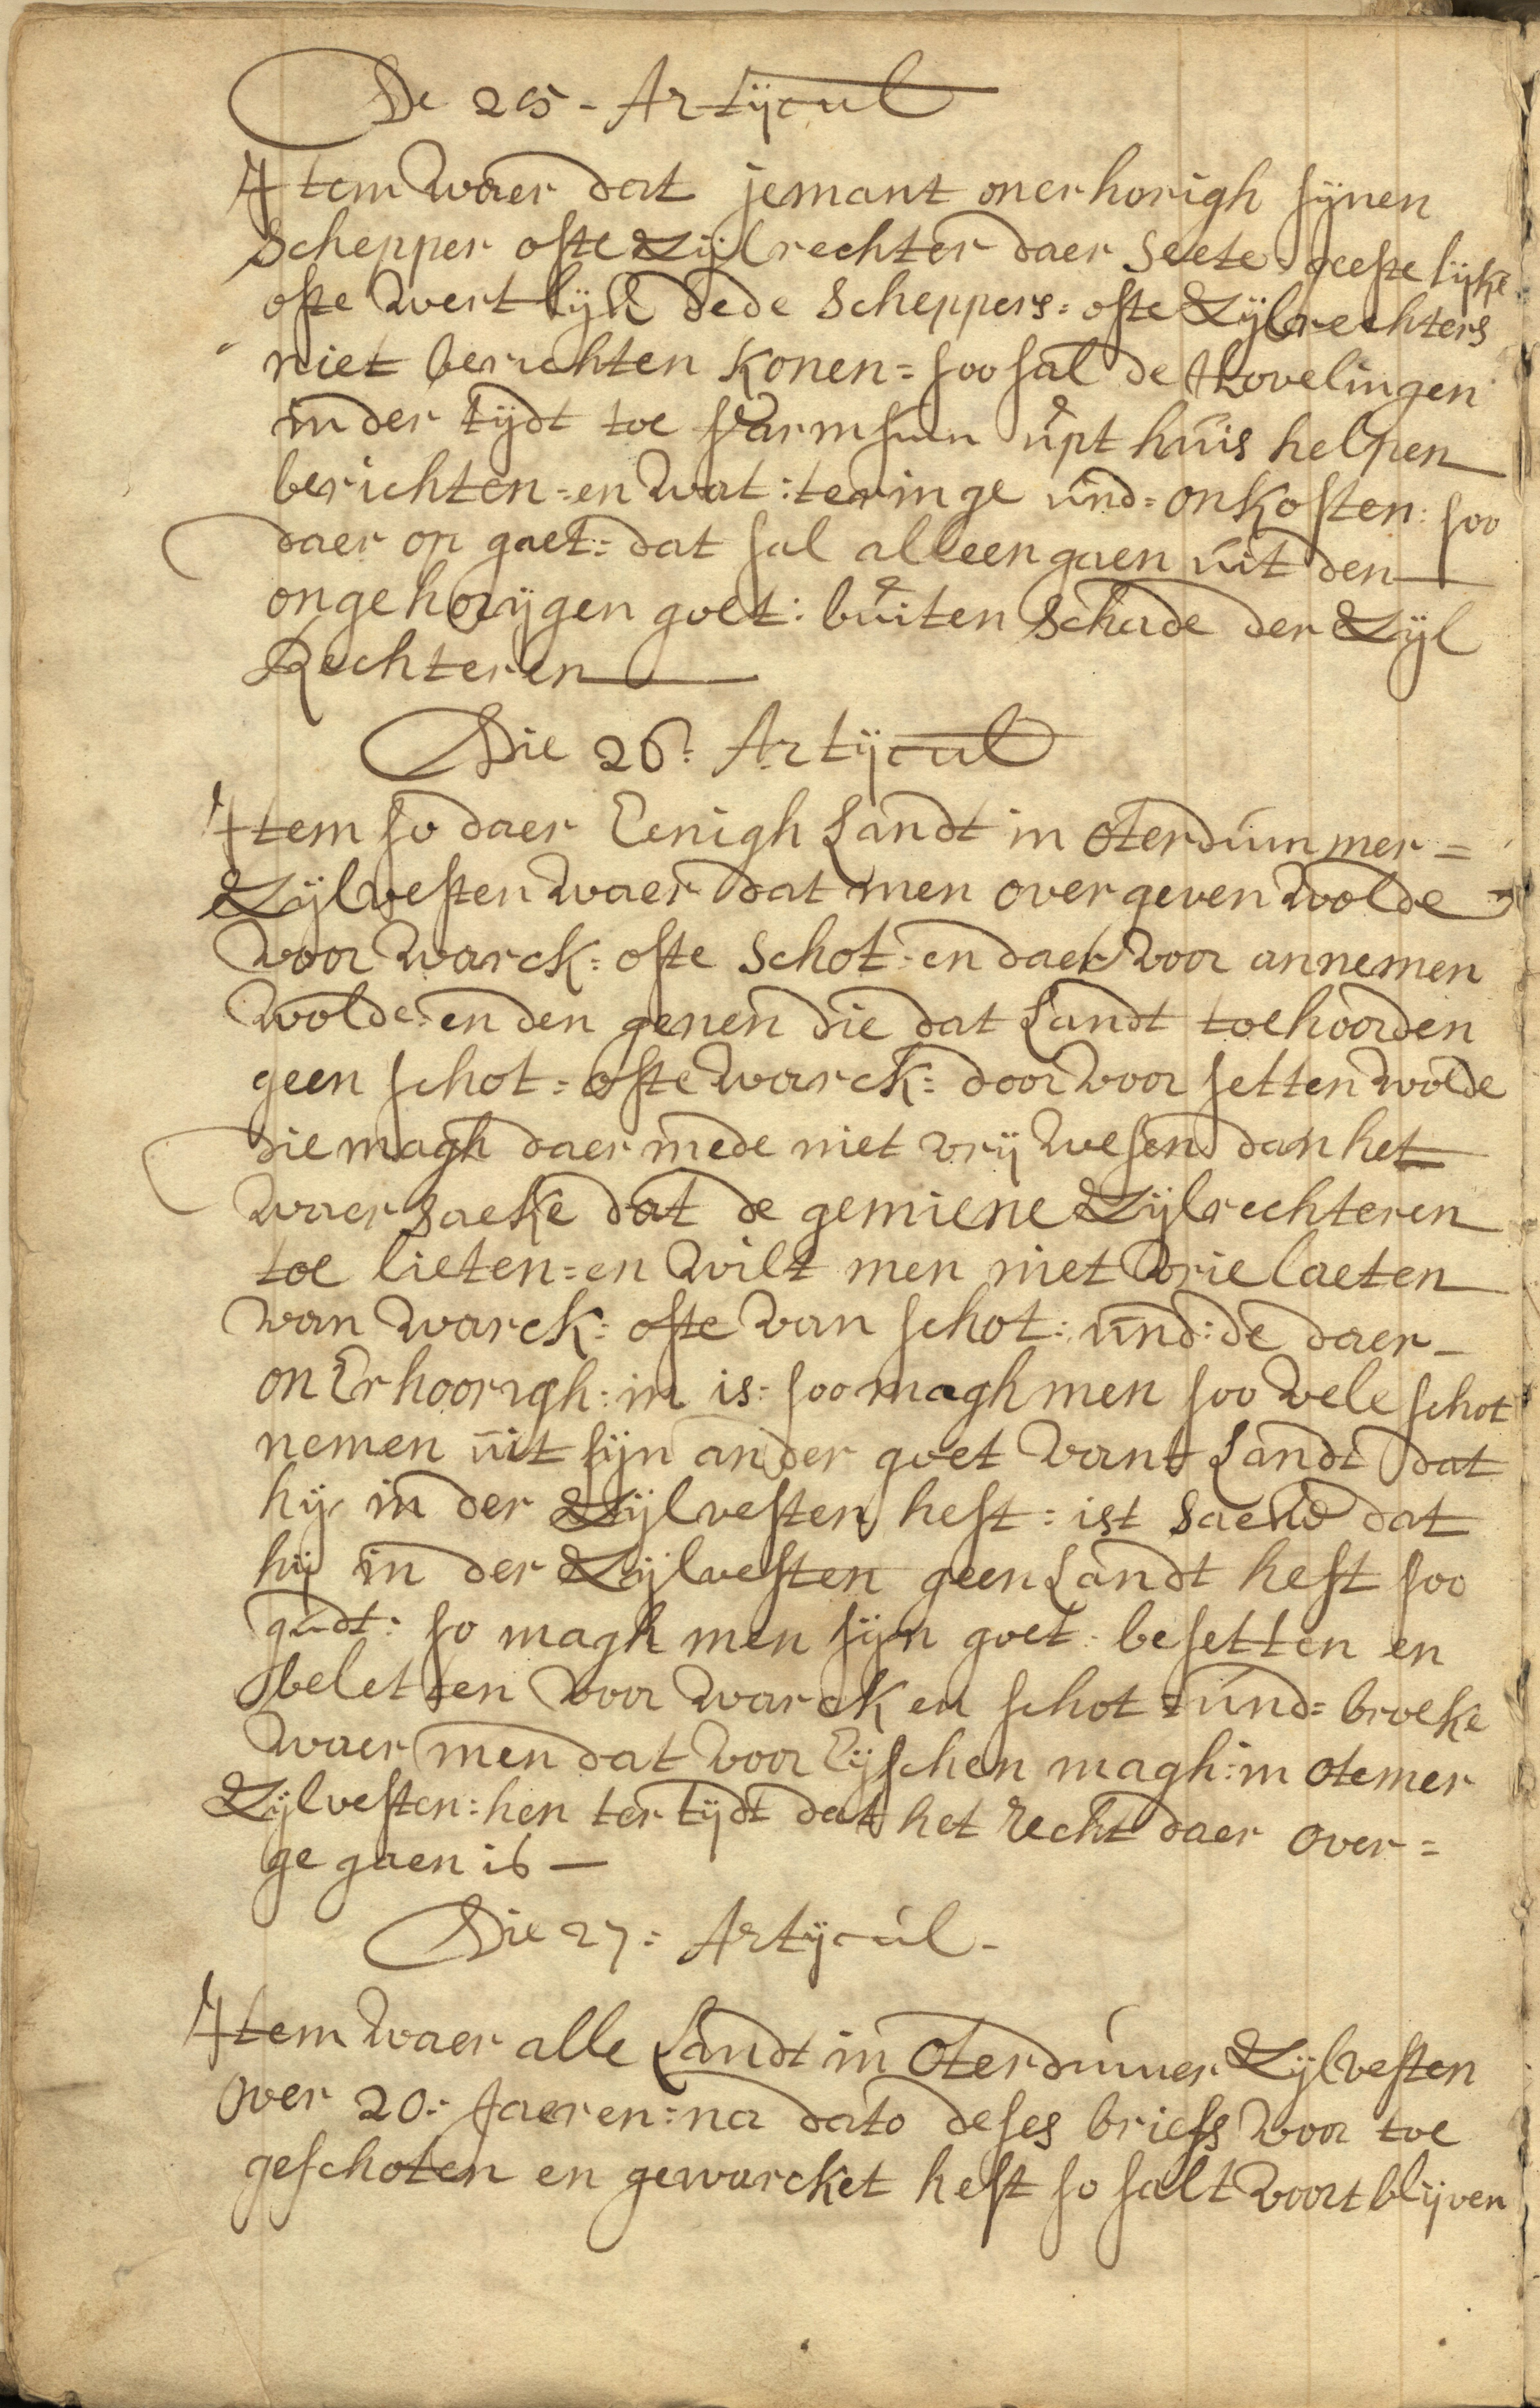 De 25 - Artijcul
Item waer dat jemant onerhorigh sijnen
Schepper ofte Zijlrechter daer seete geestelijke
ofte wertlijk dede Scheppers = ofte Zijlrechters
niet berichten konen = soo sal de Hovelingen
in der tijdt toe Farmsum upt huis helpen
berichten = en wat : teringe und = onkosten : soo
daer op gaet = dat sal alleen gaen uit den
ongehorijgen goet : buiten schade der Zijl
Rechteren
Die 26 : Artijcul
Item so daer Eenigh Landt in Oterdummer =
Zijlvesten waer dat men overgeven wolde
voor warck = ofte schot = en daer voor annemen
wolde = en den genen die dat Landt toehoorden
geen schot = ofte warck = door voor setten wolde
die magh daer mede niet vrij wesen dan het
waer saeke dat de gemiene Zijlrechteren
toe lieten = en wilt men niet vrie laeten
van warck = ofte van schot : und : de daer -
onErhoorigh : in is = soo magh men soo vele schot
nemen uit sijn ander goet vant Landt dat
hij in der Zijlvesten heft = ist saeke dat
hij in der Zijlvesten geen Landt heft soo
gudt : so magh men sijn goet = besetten en
beletten voor warck en schot = und = broeke
waer men dat voor Eijschen magh : in otemer
Zijlvesten : hen ter tijdt dat het recht daer over =
gegaen is —
Die 27 = Artijcul -
Item waer alle Landt in Oterdumer Zijlvesten
over 20 : Jaeren = na dato deses briefs voor toe
geschoten en gewarcket heft so salt voort blijven